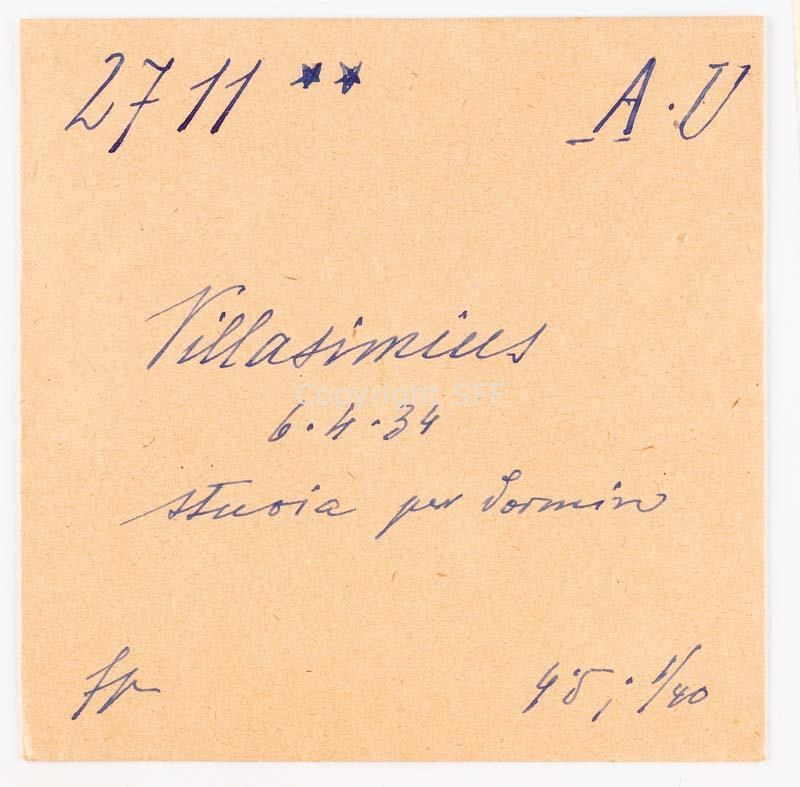 2711 ★★ A.U
Villasimius
Copyright SFF
6.4.34
stuoia per dormire
fp
4.5; 1/40